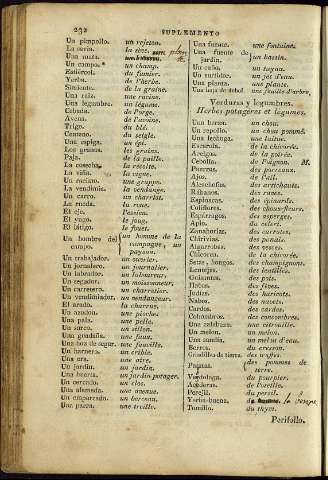 292 SUPLEMENTO
Un pimpollo. un rejeton.
La savia. la sève.
Una mata.
Un campo. un champ.
Estiércol. du fumier.
Yerba. de l'herbe.
Simiente. de la graine.
Una raiz. une racine.
Una legumbre. un légume.
Cebada. de l'orge.
Avena. de l'avoine.
Trigo. du blé.
Centeno. du seigle.
Una espiga. un épi.
Los granos. les grains.
Paja. de la paille.
La cosecha. la récolte.
La viña. la vigne.
Un racimo. une grappe.
La vendimia. la vendange.
Un carro. un charriot.
La rueda. la roue.
El eje. l'essieu.
El yugo. le joug.
El látigo. le fouet.
Un hombre del campo. un homme de la campagne, un paysan.
Un trabajador. un ouvrier.
Un jornalero. un journalier.
Un labrador. un laboureur.
Un segador. un moissonneur.
Un carretero. un charretier.
Un vendimiador. un vendangeur.
El arado. la charrue.
Un azadon. une pioche.
Una pala. une pelle.
Un surco. un sillon.
Una guadaña. une faux.
Una hoz de segar. une faucille.
Un harnero. un crible.
Una era. une aire.
Un jardin. un jardin.
Una huerta. un jardin potager.
Un cercado. un clos.
Una alameda. une avenue.
Un emparrado. un berceau.
Una parra. une treille.
Una fuente. une fontaine.
Una fuente de jardin. un bassin.
Un caño. un tuyau.
Un surtidor. un jet d'eau.
Una planta. une plante.
Una hoja de árbol. une feuille d'arbre.
Verduras y legumbres.
Herbes potagères et legumes.
Una berza. un chou.
Un repollo. un chou pommé.
Una lechuga. une laitue.
Escarola. de la chicorée.
Acelgas. de la poirée.
Cebolla. de l'oignon. M.
Puerros. des porreaux.
Ajos. de l'ail.
Alcachofas. des artichauts.
Rábanos. des raves.
Espinacas. des épinards.
Coliflores. des choux-fleurs.
Espárragos. des asperges.
Apio. du céleri.
Zanahorias. des carottes.
Chirivias. des panais.
Algarrobas. des vesces.
Chicoria. de la chicorée.
Setas, hongos. des champignons.
Lentejas. des lentilles.
Guisantes. des pois.
Habas. des fèves.
Judías. des haricots.
Nabos. des navets.
Cardos. des cardons.
Cohombros. des concombres.
Una calabaza. une citrouille.
Un melon. un melon.
Una sandía. un melon d'eau.
Berros. du cresson.
Criadillas de tierra. des truffes.
Patatas. des pommes de terre.
Verdolaga. du pourpier.
Acederas. de l'oseille.
Perejil. du persil.
Yerba-buena.
Tomillo. du thym.
Perifollo.